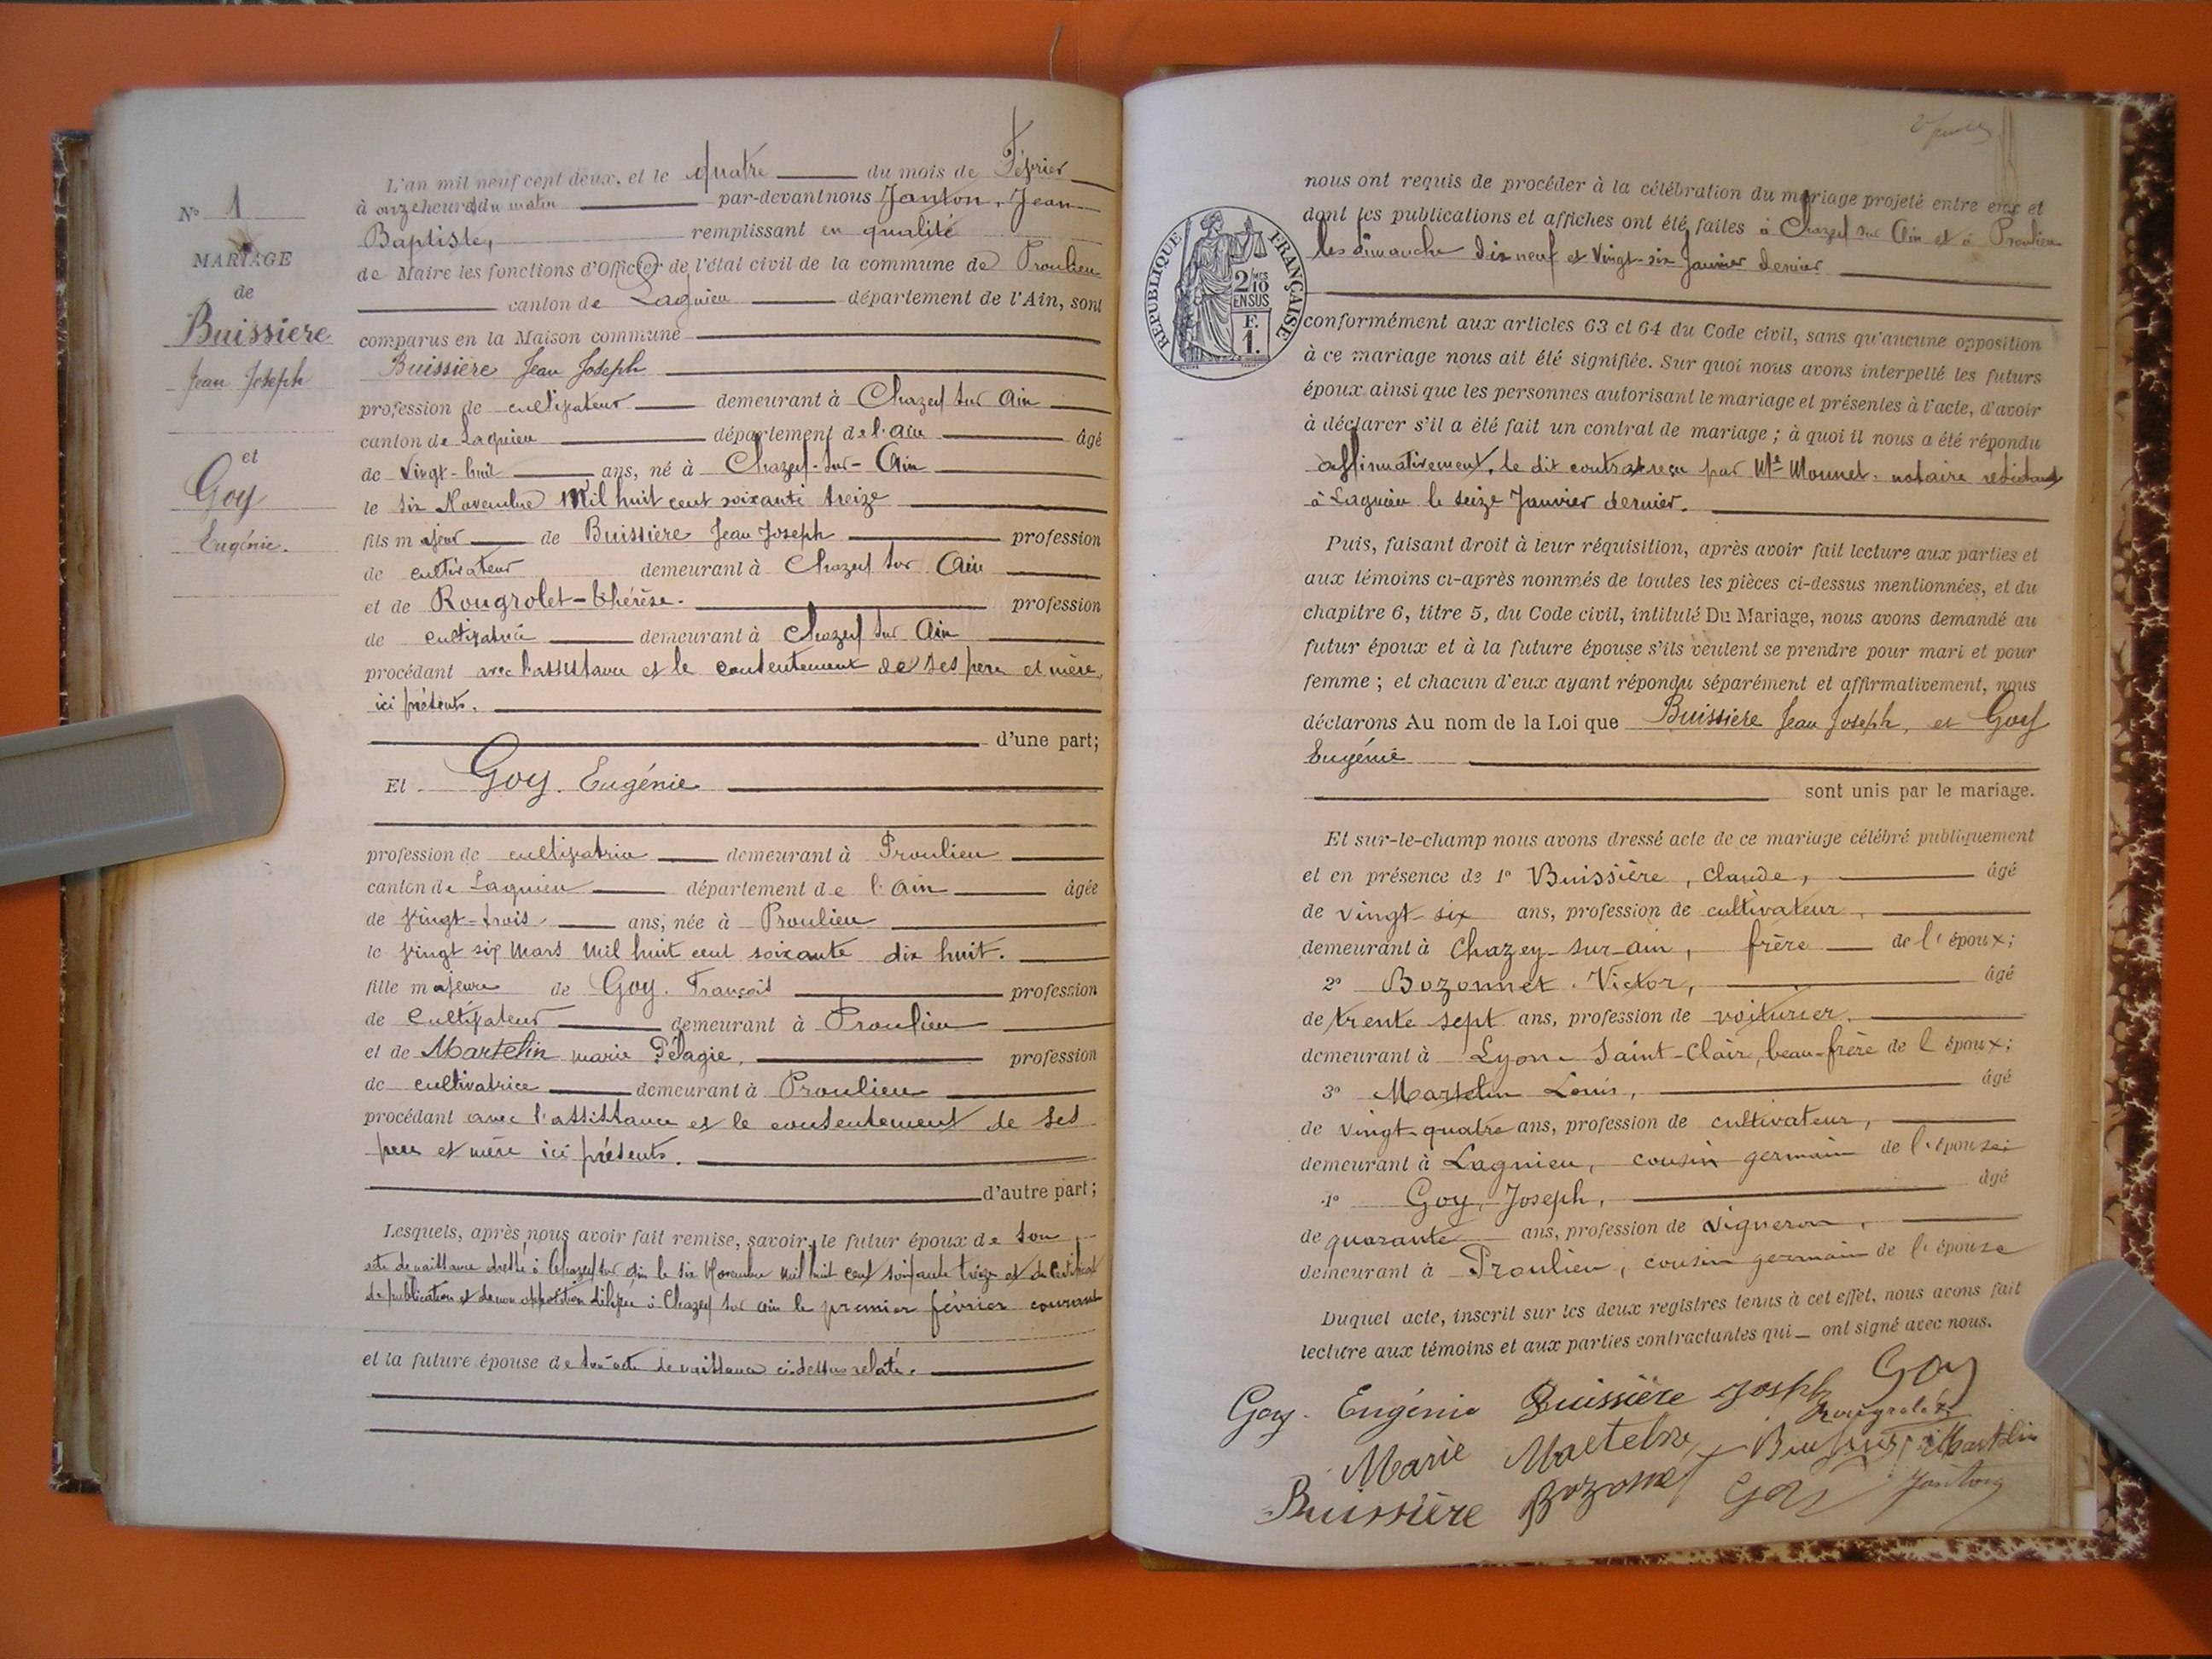 N° 1
MARIAGE
de
Buissiere
Jean Joseph
et
Goy
Eugénie.
L'an mil neuf cent deux, et le quatre du mois de Février
à onze heures du matin par-devant nous Janton, Jean
Baptiste, remplissant en qualité
de Maire les fonctions d'Officier de l'état civil de la commune de Proulieu
canton de Lagnieu département de l'Ain, sont
comparus en la Maison commune
Buissière Jean Joseph
profession de cultivateur demeurant à Chazey sur Ain
canton de Lagnieu département de l'Ain âgé
de vingt-huit ans, né à Chazey-sur-Ain
le six Novembre Mil huit cent soixante treize
fils majeur de Buissière Jean Joseph profession
de cultivateur demeurant à Chazey sur Ain
et de Rougrolet-Thérèse. profession
de cultivatrice demeurant à Chazey sur Ain
procédant avec l'assistance et le consentement de ses père et mère,
ici présents.
d'une part;
Et Goy. Eugénie
profession de cultivatrice demeurant à Proulieu
canton de Lagnieu département de l'Ain âgée
de vingt-trois ans, née à Proulieu
le vingt six Mars Mil huit cent soixante dix huit.
fille majeure de Goy. François profession
de Cultivateur demeurant à Proulieu
et de Martelin marie Pélagie, profession
de cultivatrice demeurant à Proulieu
procédant avec l'assistance et le consentement de ses
père et mère ici présents.
d'autre part;
Lesquels, après nous avoir fait remise, savoir, le futur époux de son
acte de naissance dressé à Chazey sur Ain le six Novembre Mil huit cent soixante treize et du Certificat
de publication et de non opposition délivré à Chazey sur Ain le premier février courant
et la future épouse de son acte de naissance ci-dessus relaté.
nous ont requis de procéder à la célébration du mariage projeté entre eux et
dont les publications et affiches ont été faites à Chazey sur Ain et à Proulieu
les dimanche dix neuf et vingt-six Janvier dernier
RÉPUBLIQUE FRANÇAISE
2/10 EN SUS
F. 1.
conformément aux articles 63 et 64 du Code civil, sans qu'aucune opposition
à ce mariage nous ait été signifiée. Sur quoi nous avons interpellé les futurs
époux ainsi que les personnes autorisant le mariage et présentes à l'acte, d'avoir
à déclarer s'il a été fait un contrat de mariage ; à quoi il nous a été répondu
affirmativement, le dit contrat reçu par Me Monnet. notaire résidant
à Lagnieu le seize Janvier dernier.
Puis, faisant droit à leur réquisition, après avoir fait lecture aux parties et
aux témoins ci-après nommés de toutes les pièces ci-dessus mentionnées, et du
chapitre 6, titre 5, du Code civil, intitulé Du Mariage, nous avons demandé au
futur époux et à la future épouse s'ils veulent se prendre pour mari et pour
femme ; et chacun d'eux ayant répondu séparément et affirmativement, nous
déclarons Au nom de la Loi que Buissière Jean Joseph, et Goy
Eugénie
sont unis par le mariage.
Et sur-le-champ nous avons dressé acte de ce mariage célébré publiquement
et en présence de 1° Buissière, Claude, âgé
de vingt-six ans, profession de cultivateur,
demeurant à Chazey-sur-ain, frère de l'époux;
2° Bozonnet. Victor, âgé
de trente sept ans, profession de voiturier.
demeurant à Lyon-Saint-Clair, beau-frère de l'époux;
3° Martelin Louis, âgé
de vingt-quatre ans, profession de cultivateur,
demeurant à Lagnieu, cousin germain de l'épouse;
4° Goy, Joseph, âgé
de quarante ans, profession de vigneron,
demeurant à Proulieu, cousin germain de l'épouse
Duquel acte, inscrit sur les deux registres tenus à cet effet, nous avons fait
lecture aux témoins et aux parties contractantes qui ont signé avec nous.
Goy. Eugénie Buissière Joseph Goy
Rougrolet
Marie Martelin Buissière Martelin
Buissière Bozonnet Goy Janton